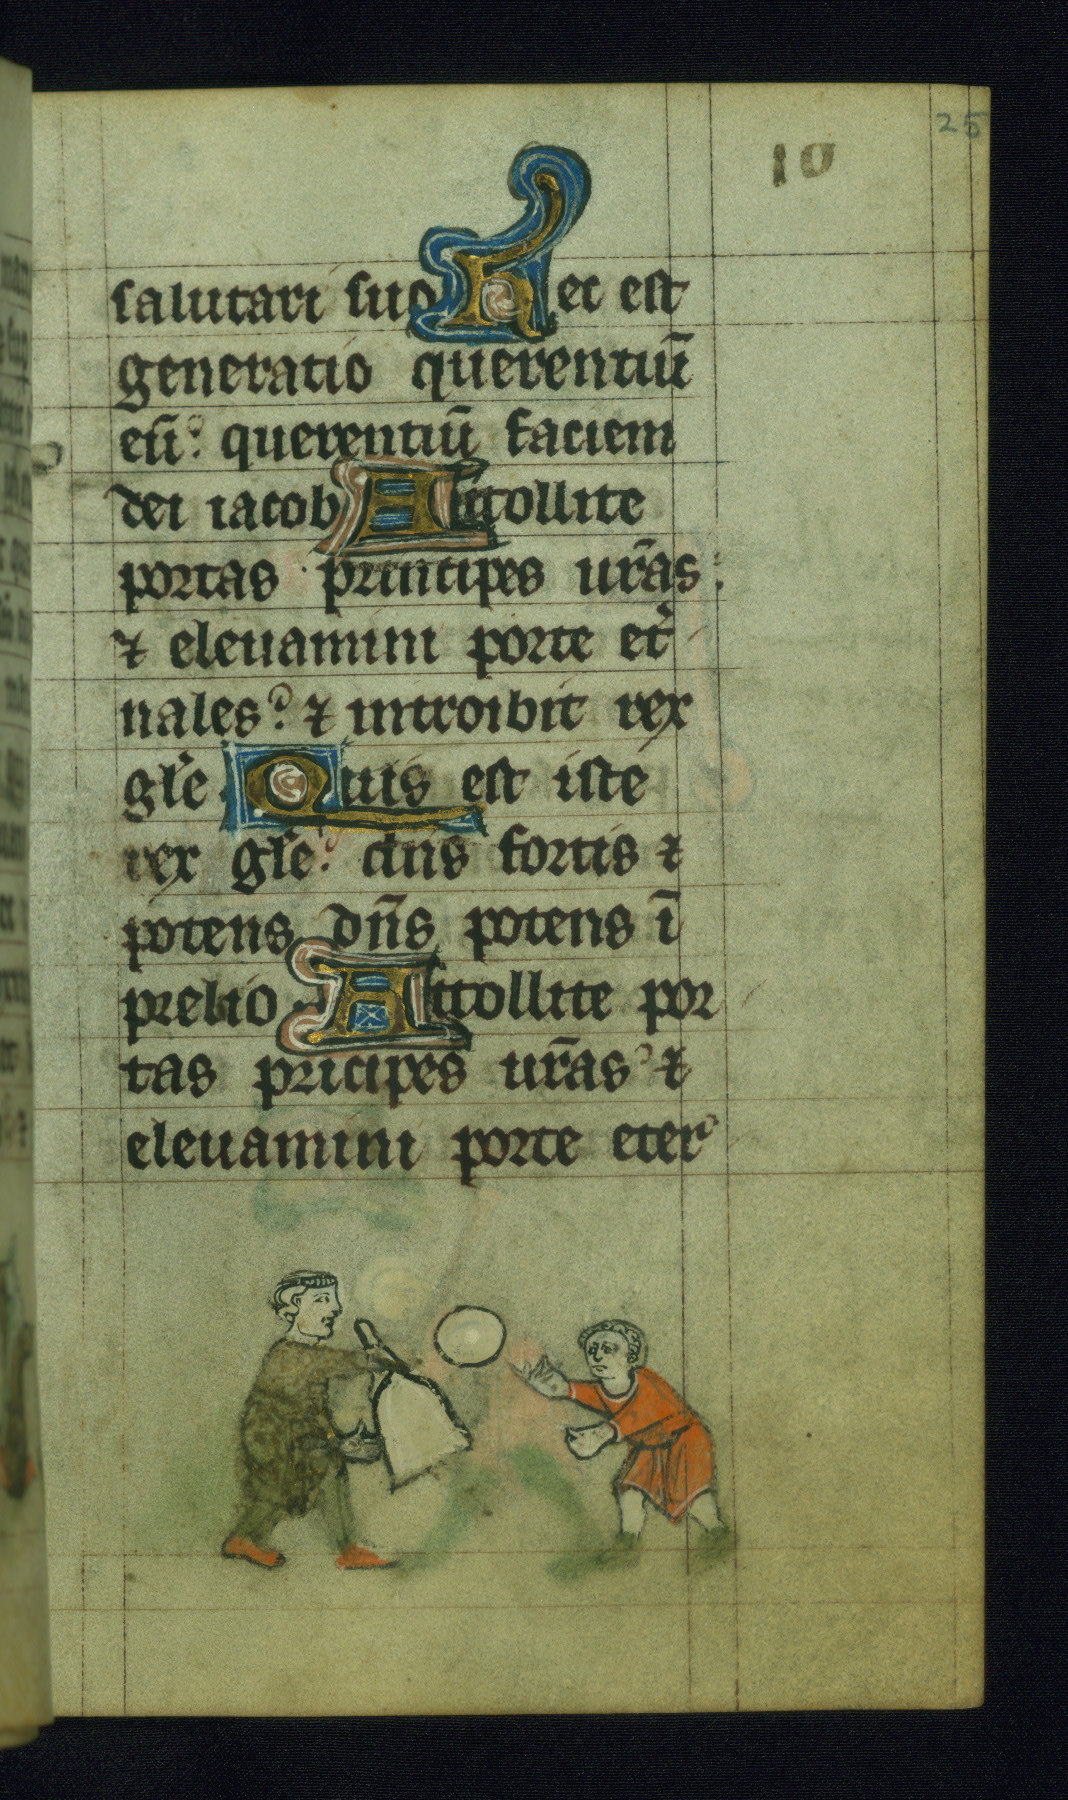 25
10
salutari suo Hec est
generatio querentiū
eū: querentiū faciem
dei iacob Attollite
portas principes ur̄as:
⁊ eleuamini porte et̾
nales: ⁊ introibit rex
gl̄e Quis est iste
rex gl̄e: dn̄s fortis ⁊
potens dn̄s potens ī
prelio Attollite por
tas pricipes ur̄as: ⁊
eleuamini porte eter᾽